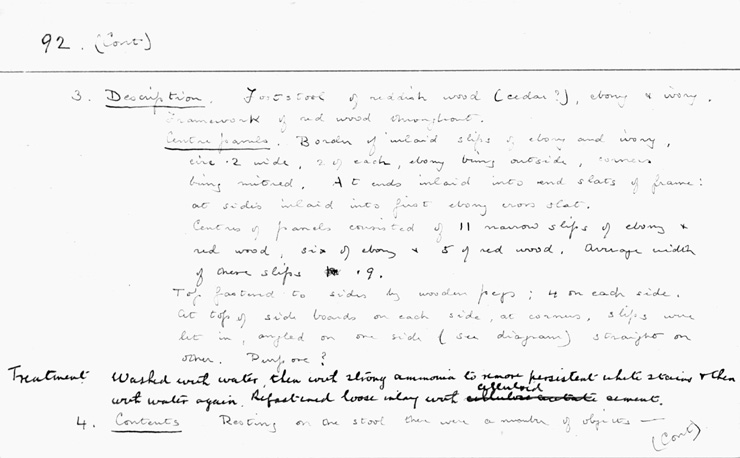 92. (Cont)
3. Description. Footstool of reddish wood (cedar?), ebony & ivory.
Framework of red wood throughout.
Centre panels. Border of inlaid slips of ebony and ivory,
circ .2 wide, 2 of each, ebony being outside, corners
being mitred. At ends inlaid into end slats of frame:
at sides inlaid into first ebony cross slat.
Centres of panels consisted of 11 narrow slips of ebony &
red wood, six of ebony & 5 of red wood. Average width
of these slips .9.
Top fastened to sides by wooden pegs; 4 on each side.
At top of side boards on each side, at corners, slips were
let in, angled on one side (see diagram) straight on
other. Purpose?
Treatment Washed with water, then with strong ammonia to remove persistent white stains & then
with water again. Refastened loose inlay with celluloid cement.
4. Contents Resting on the stool there were a number of objects —
(Cont)